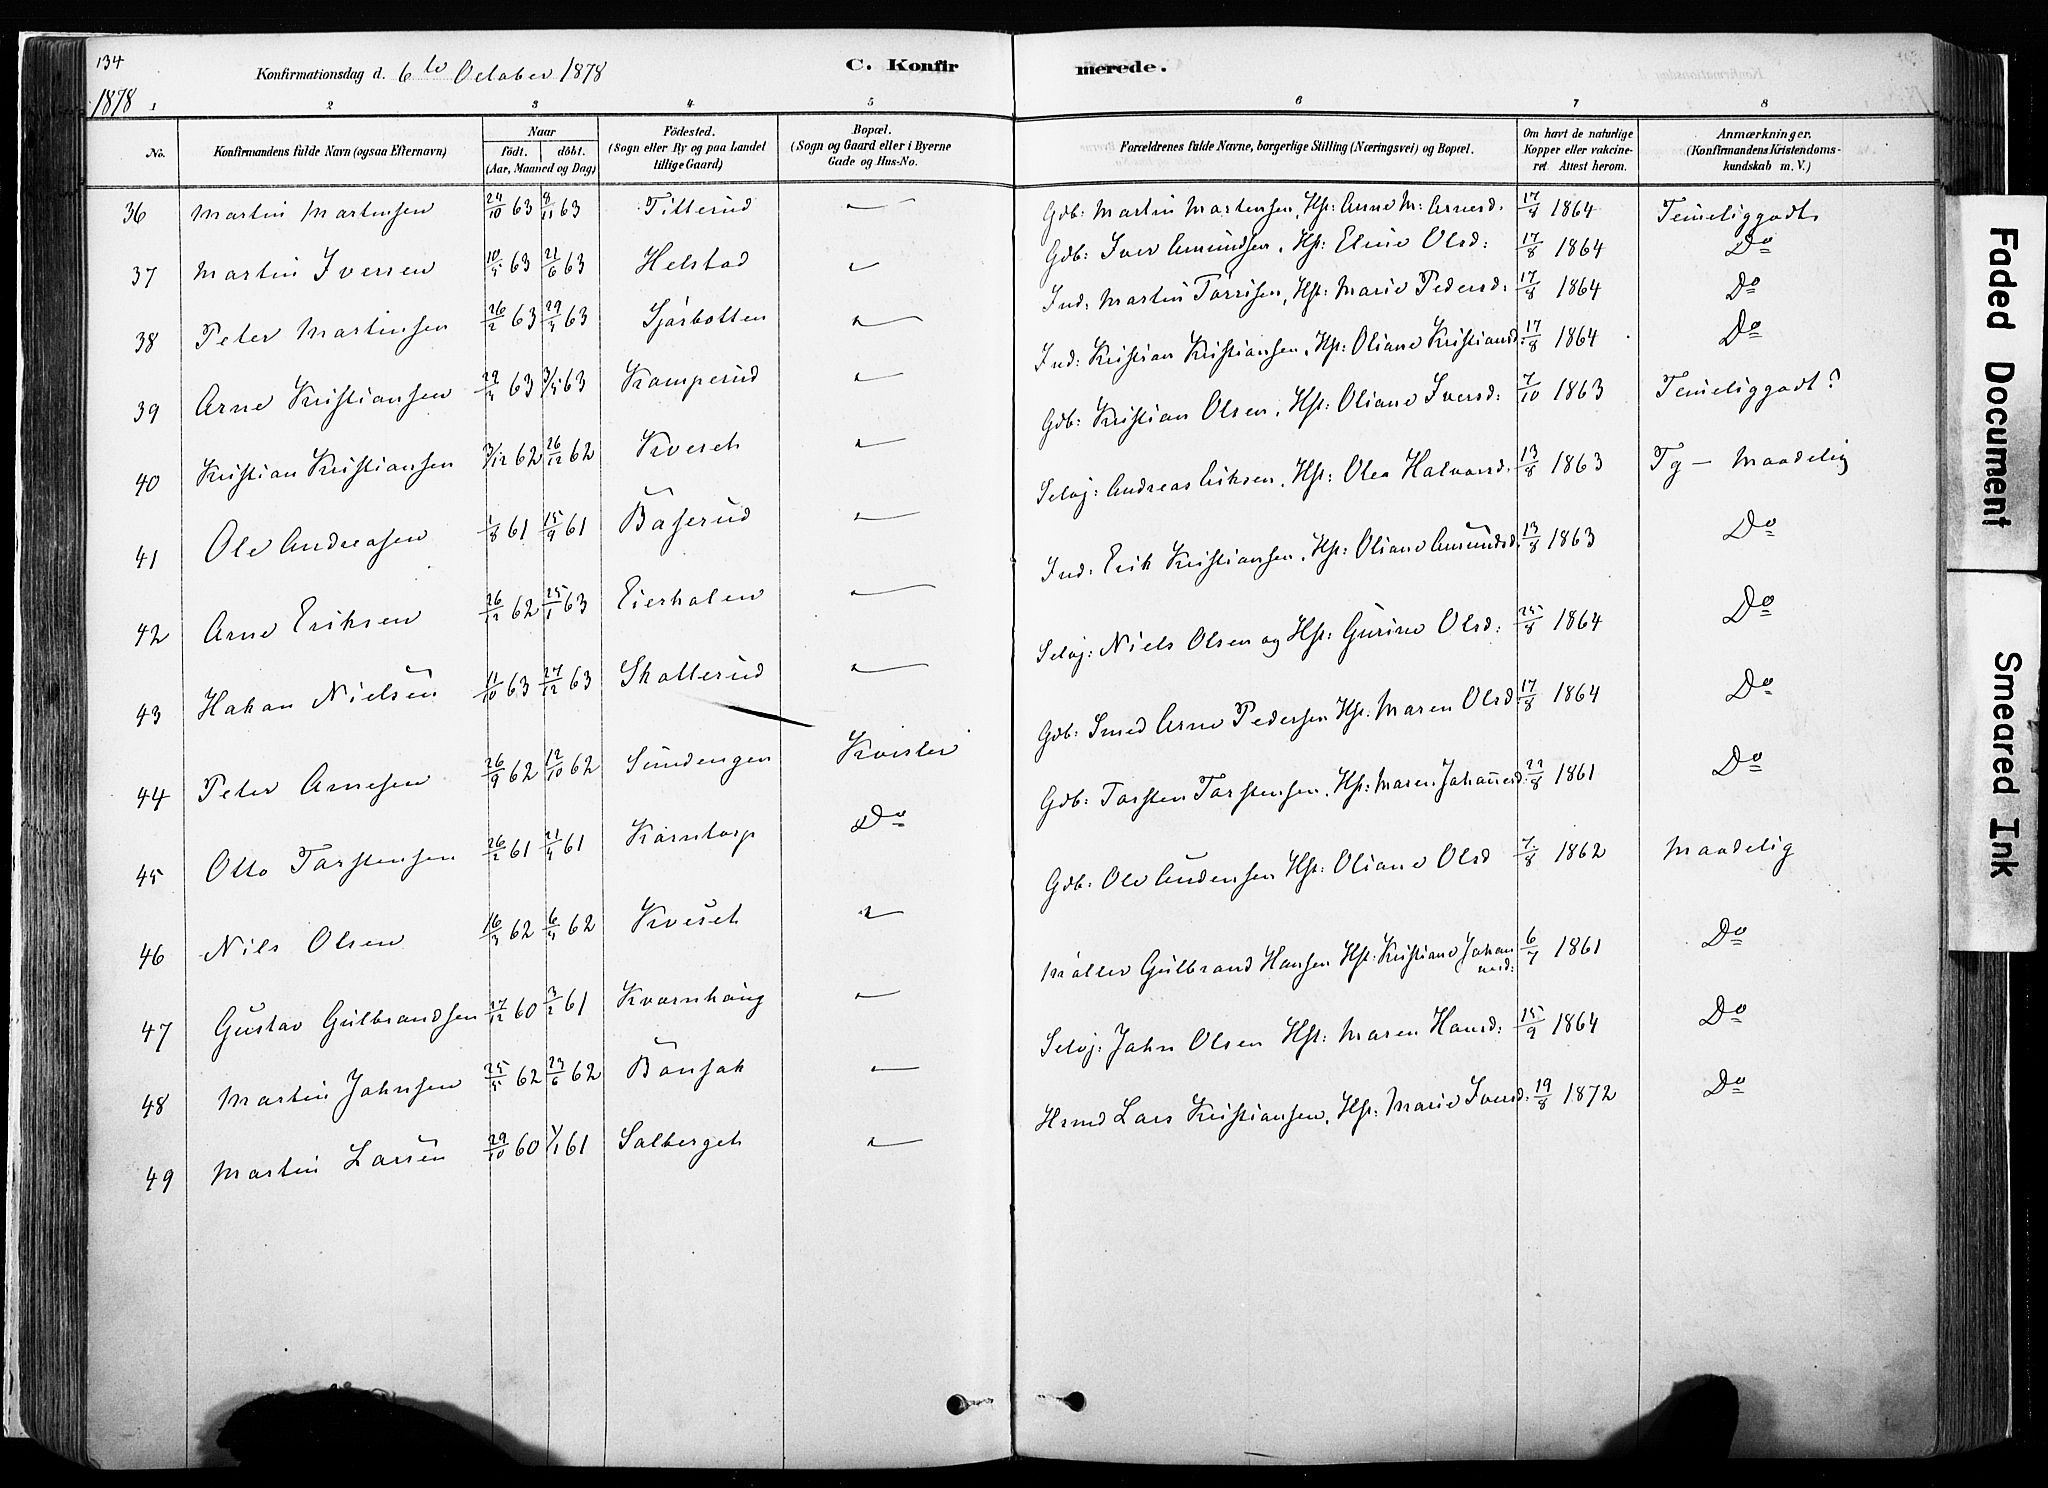 134
Konfirmationsdag d. 6te October 1878
C. Konfirmerede.
1878
1 2 3 4 5 6 7 8
No.
Konfirmandens fulde Navn (ogsaa Efternavn)
Naar
födt. döbt.
(Aar, Maaned og Dag)
Födested.
(Sogn eller By og paa Landet tillige Gaard)
Bopæl.
(Sogn og Gaard eller i Byerne Gade og Hus-No.
Forældrenes fulde Navne, borgerlige Stilling (Næringsvei) og Bopæl.
Om havt de naturlige Kopper eller vakcineret Attest herom.
Anmærkninger.
(Konfirmandens Kristendomskundskab m. V.)
36 Martin Martinsen 24/10 63 8/11 63 Titterud — Gdb: Martin Martensen, Hst: Anne M: Arnesd. 17/8 1864 Temeliggodt
37 Martin Iversen 10/5 63 21/6 63 Helstad — Gdb: Iver Amundsen, Hst: Eline Olsd: 17/8 1864 Do
38 Peter Martinsen 26/2 63 29/3 63 Sjørbotten — Ind: Martin Torrisen, Hst: Marie Pedersd: 17/8 1864 Do
39 Arne Kristiansen 63 3/5 63 Kamperud — Ind: Kristian Kristiansen, Hst: Oliane Kristiansd: 17/8 1864 Do
40 Kristian Kristiansen 3/12 62 26/12 62 Kveset — Gdb: Kristian Olsen, Hst: Oliane Iversd: 7/10 1863 Temeliggodt?
41 Ole Andreasen 1/8 61 15/9 61 Baserud — Selvj: Andreas Eriksen, Hst: Olea Halvorsd. 13/8 1863 Tg — Maadelig
42 Arne Eriksen 26/12 62 25/1 63 Eierholen — Ind: Erik Kristiansen, Hst: Oliane Amundsd. 13/8 1863 Do
43 Hakan Nielsen 11/10 63 27/12 63 Skallerud — Selvj: Niels Olsen og Hst: Gurine Olsd: 25/8 1864 Do
44 Peter Arnesen 26/9 62 12/10 62 Sundengen Kvisler Gdb: Smed Arne Pedersen Hst: Maren Olsd: 17/8 1864 Do
45 Otto Torstensen 26/2 61 21/4 61 Korntorp Do Gdb: Torsten Torstensen, Hst: Maren Johannesd. 22/8 1861 Do
46 Nils Olsen 16/3 62 6/4 62 Kveset — Gdb: Ole Audensen Hst: Oliane Olsd 7/8 1862 Maadelig
47 Gustav Gulbrandsen 17/12 60 3/2 61 Kvarnhaug — Møller Gulbrand Hansen Hst: Kristiane Johannesd: 6/7 1861 Do
48 Martin Johnsen 25/5 62 23/6 62 Bonsak — Selvj: John Olsen Hst: Maren Hansd: 15/9 1864 Do
49 Martin Larsen 29/10 60 1/1 61 Solberget — Hsmd Lars Kristiansen, Hst: Marie Iversd: 19/8 1872 Do
Faded Document
Smeared Ink